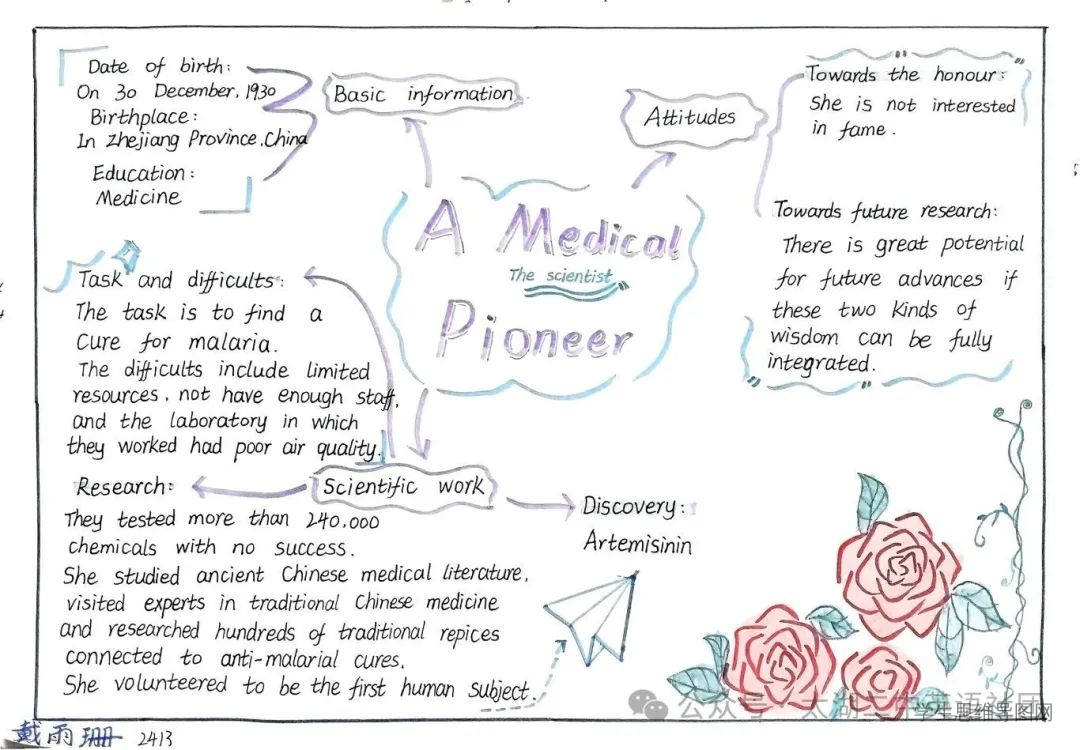 A Medical
The scientist
Pioneer
Basic information
Date of birth:
On 30 December, 1930
Birthplace:
In Zhejiang Province, China
Education:
Medicine
Attitudes
Towards the honour:
She is not interested
in fame.
Towards future research:
There is great potential
for future advances if
these two kinds of
wisdom can be fully
integrated.
Task and difficults:
The task is to find a
cure for malaria.
The difficults include limited
resources, not have enough staff,
and the laboratory in which
they worked had poor air quality.
Scientific work
Research:
They tested more than 240,000
chemicals with no success.
She studied ancient Chinese medical literature,
visited experts in traditional Chinese medicine
and researched hundreds of traditional repices
connected to anti-malarial cures.
She volunteered to be the first human subject.
Discovery:
Artemisinin
戴雨珊 2413
公众号
学生思维导图网